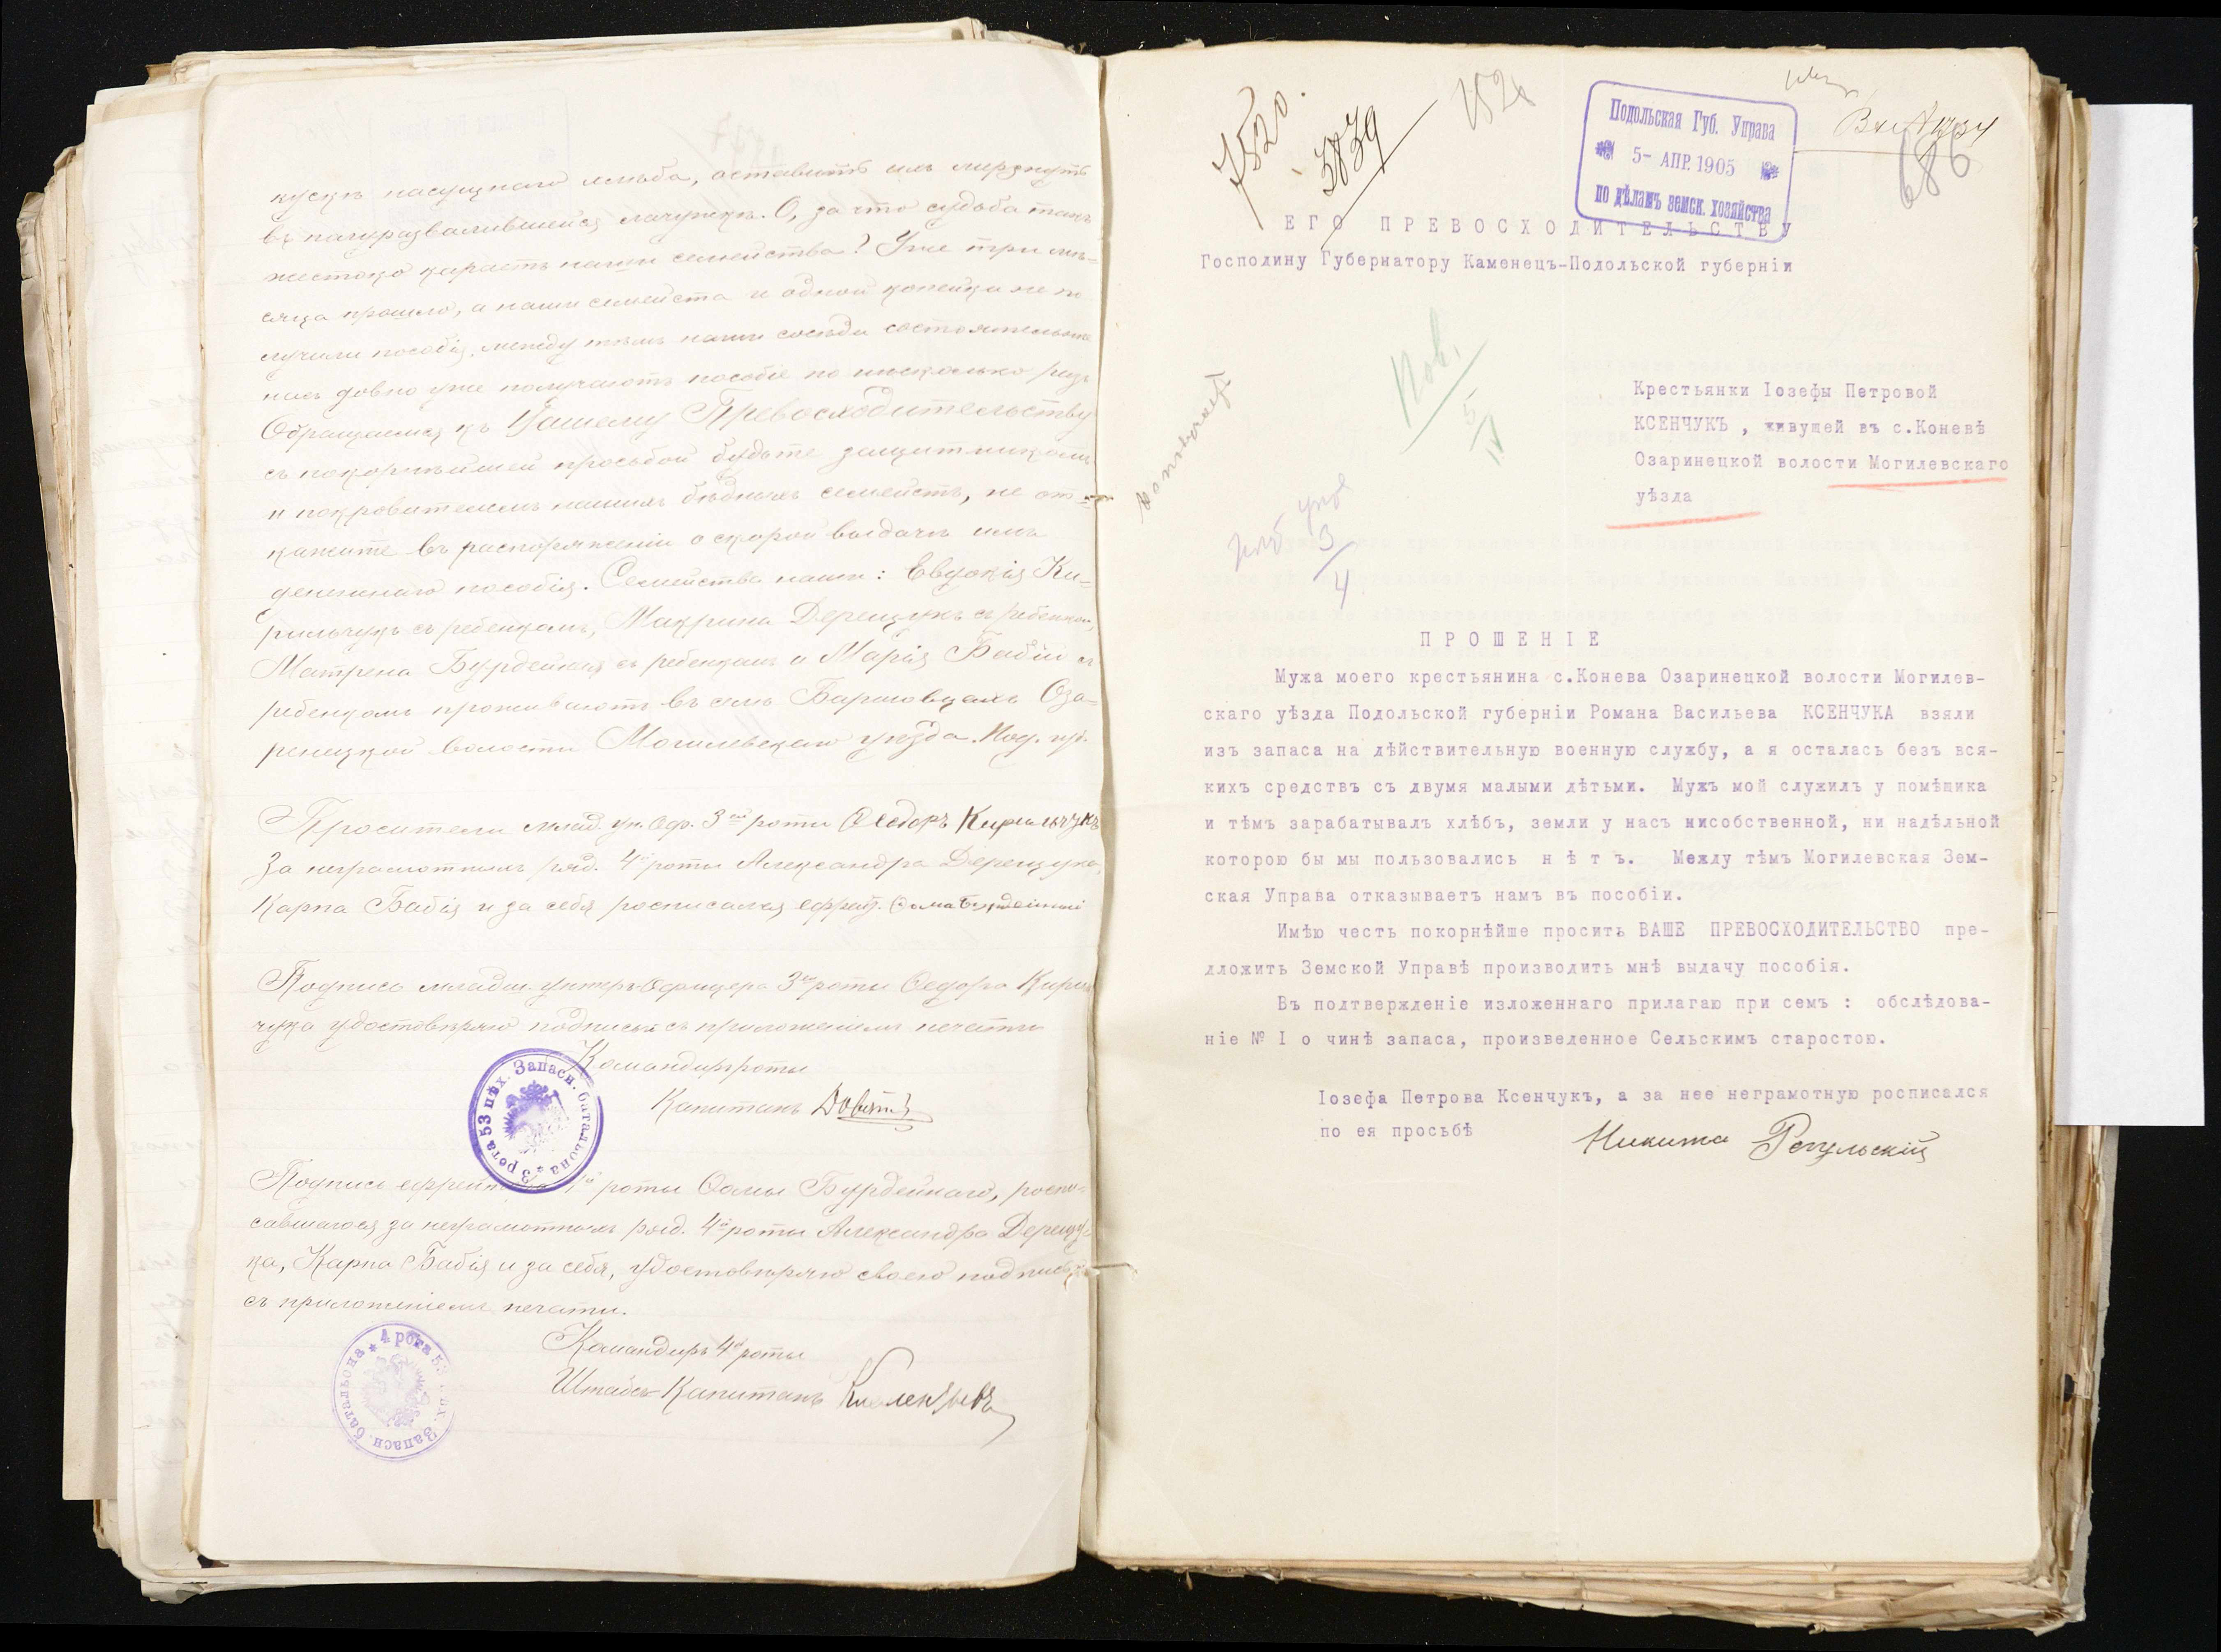 кусокъ насущнаго хлѣба, оставитъ ихъ мерзнуть
въ полуразвалившейся лачужкѣ. О, за что судьба такъ
жестоко караетъ наши семейства? Уже три мѣ-
сяца прошло, а наши семейста и одной копейки не по
лучили пособія, между тѣмъ наши сосѣди состоятельнѣе
насъ довно уже получаютъ пособіе по нѣсколько разъ
Обращаемся къ Вашему Превосходительству
съ покорнѣйшей просьбой будьте защитникомъ
и покровителемъ нашихъ бѣдныхъ семействъ, не от-
кажите въ распоряженіи о скорой выдачѣ имъ
денежнаго пособія. Семейства наши: Евдокія Ки-
рильчукъ съ ребенкомъ, Макрина Дерещукъ съ ребенком,
Матрена Бурдейная съ ребенкомъ и Марія Бабій съ
ребенкомъ проживаютъ въ селѣ Озa-
ренецкой волости Могилевскаго уѣзда. Под. губ.
Просители млад. ун. Оф. 3ей роты Ѳеодоръ Кирильчукъ
За неграмотныхъ ряд. 4й роты Александра Дерещука,
Карпа Бабія и за себя росписался ефрейт. Ѳома Бурдейный
Подпись младш. Унтеръ-Офицера 3ей роты Ѳедора Кириль
чука удостовѣряю подписью съ приложеніемъ печати
Командиръ роты
Капитанъ
3 рота 53 пѣх. Запасн. баталъона
Подпись ефрейтора 4й роты Ѳомы Бурдейнаго, роспи-
савшагося за неграмотныхъ ряд. 4й роты Александра Дерещу-
ка, Карпа Бабія и за себя, удостовѣряю своею подписью
съ приложеніемъ печати.
Командиръ 4й роты
Штабсъ-Капитанъ
4 рота 53 пѣх. Запасн. баталъона
7520.
3839
152
Подольская Губ. Управа
5- АПР. 1905
по дѣламъ земск. хозяйства
686
ЕГО ПРЕВОСХОДИТЕЛЬСТВУ
Господину Губернатору Каменецъ-Подольской губерніи
Крестьянки Іозефы Петровой
КСЕНЧУКЪ , живущей въ с.Коневѣ
Озаринецкой волости Могилевскаго
уѣзда
5
IV
3
4
ПРОШЕНІЕ
Мужа моего крестьянина с.Конева Озаринецкой волости Могилев-
скаго уѣзда Подольской губерніи Романа Васильева КСЕНЧУКА взяли
изъ запаса на дѣйствительную военную службу, а я осталась безъ вся-
кихъ средствъ съ двумя малыми дѣтьми. Мужъ мой служилъ у помѣщика
и тѣмъ зарабатывалъ хлѣбъ, земли у насъ нисобственной, ни надѣльной
которою бы мы пользовались н ѣ т ъ. Между тѣмъ Могилевская Зем-
ская Управа отказываетъ намъ въ пособіи.
Имѣю честь покорнѣйше просить ВАШЕ ПРЕВОСХОДИТЕЛЬСТВО пре-
дложить Земской Управѣ производить мнѣ выдачу пособія.
Въ подтвержденіе изложеннаго прилагаю при семъ : обслѣдова-
ніе № I о чинѣ запаса, произведенное Сельскимъ старостою.
Іозефа Петрова Ксенчукъ, а за нее неграмотную росписался
по ея просьбѣ
Никита Регульскій